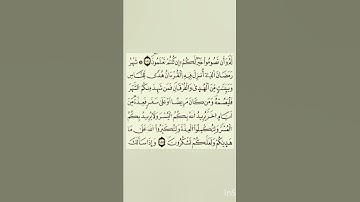 لَّهُۥ وَأَن تَصُومُوا۟ خَيْرٌ لَّكُمْ إِن كُنتُمْ تَعْلَمُونَ ۝ شَهْرُ
رَمَضَانَ ٱلَّذِىٓ أُنزِلَ فِيهِ ٱلْقُرْءَانُ هُدًى لِّلنَّاسِ
وَبَيِّنَٰتٍ مِّنَ ٱلْهُدَىٰ وَٱلْفُرْقَانِ فَمَن شَهِدَ مِنكُمُ ٱلشَّهْرَ
فَلْيَصُمْهُ وَمَن كَانَ مَرِيضًا أَوْ عَلَىٰ سَفَرٍ فَعِدَّةٌ مِّنْ
أَيَّامٍ أُخَرَ يُرِيدُ ٱللَّهُ بِكُمُ ٱلْيُسْرَ وَلَا يُرِيدُ بِكُمُ
ٱلْعُسْرَ وَلِتُكْمِلُوا۟ ٱلْعِدَّةَ وَلِتُكَبِّرُوا۟ ٱللَّهَ عَلَىٰ مَا
هَدَىٰكُمْ وَلَعَلَّكُمْ تَشْكُرُونَ ۝ وَإِذَا سَأَلَكَ
InS